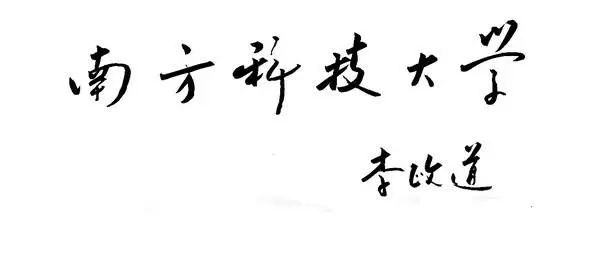 南方科技大学
李政道